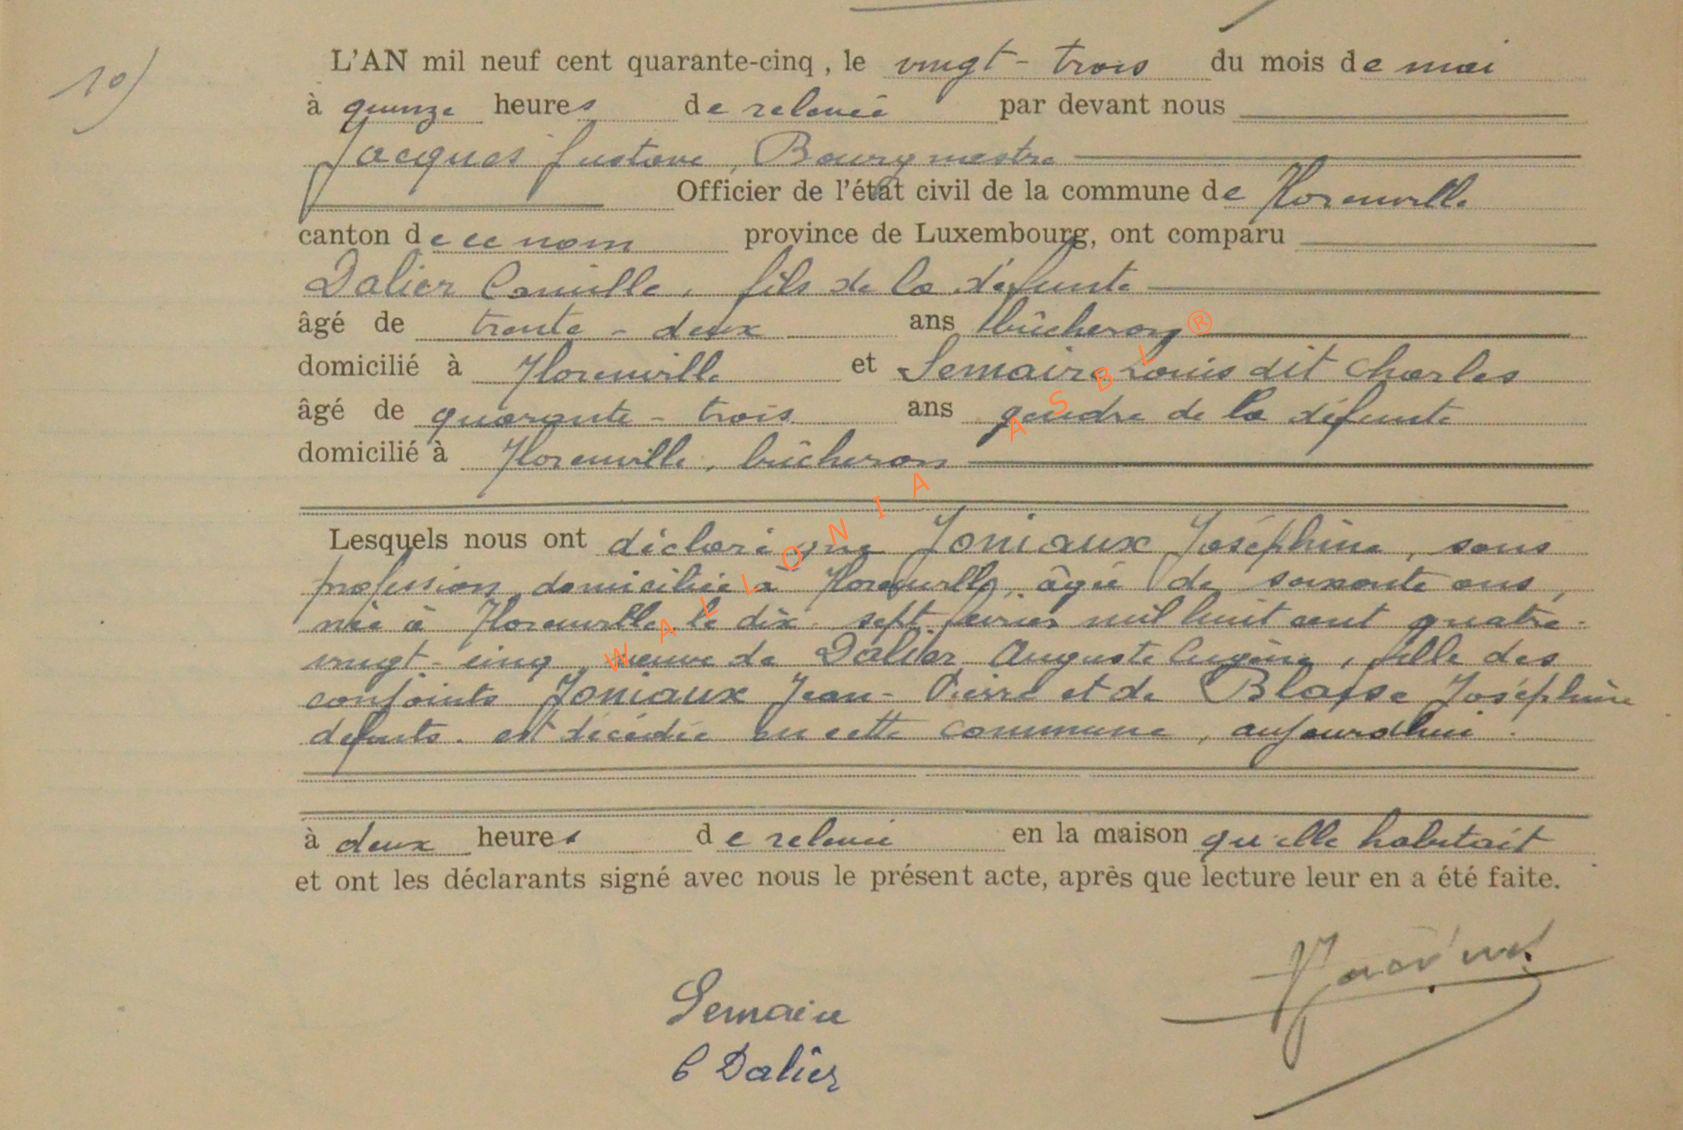 10)
L'AN mil neuf cent quarante-cinq, le vingt-trois du mois de mai
à quinze heures de relevée par devant nous
Jacques Gustave, Bourgmestre
Officier de l'état civil de la commune de Florenville
canton de ce nom province de Luxembourg, ont comparu
Dalier Camille, fils de la défunte
âgé de trente-deux ans bûcheron
domicilié à Florenville et Lemaire Louis dit Charles
âgé de quarante-trois ans gendre de la défunte
domicilié à Florenville, bûcheron
Lesquels nous ont déclaré que Joniaux Joséphine, sans
profession, domiciliée à Florenville, âgée de soixante ans,
née à Florenville, le dix-sept février mil huit cent quatre-
vingt-cinq, veuve de Dalier Auguste Eugène, fille des
conjoints Joniaux Jean-Pierre et de Blaise Joséphine
défunts. est décédée en cette commune, aujourd'hui.
à deux heures de relevée en la maison qu'elle habitait
et ont les déclarants signé avec nous le présent acte, après que lecture leur en a été faite.
Lemaire
C Dalier
WALLONIA ASBL®